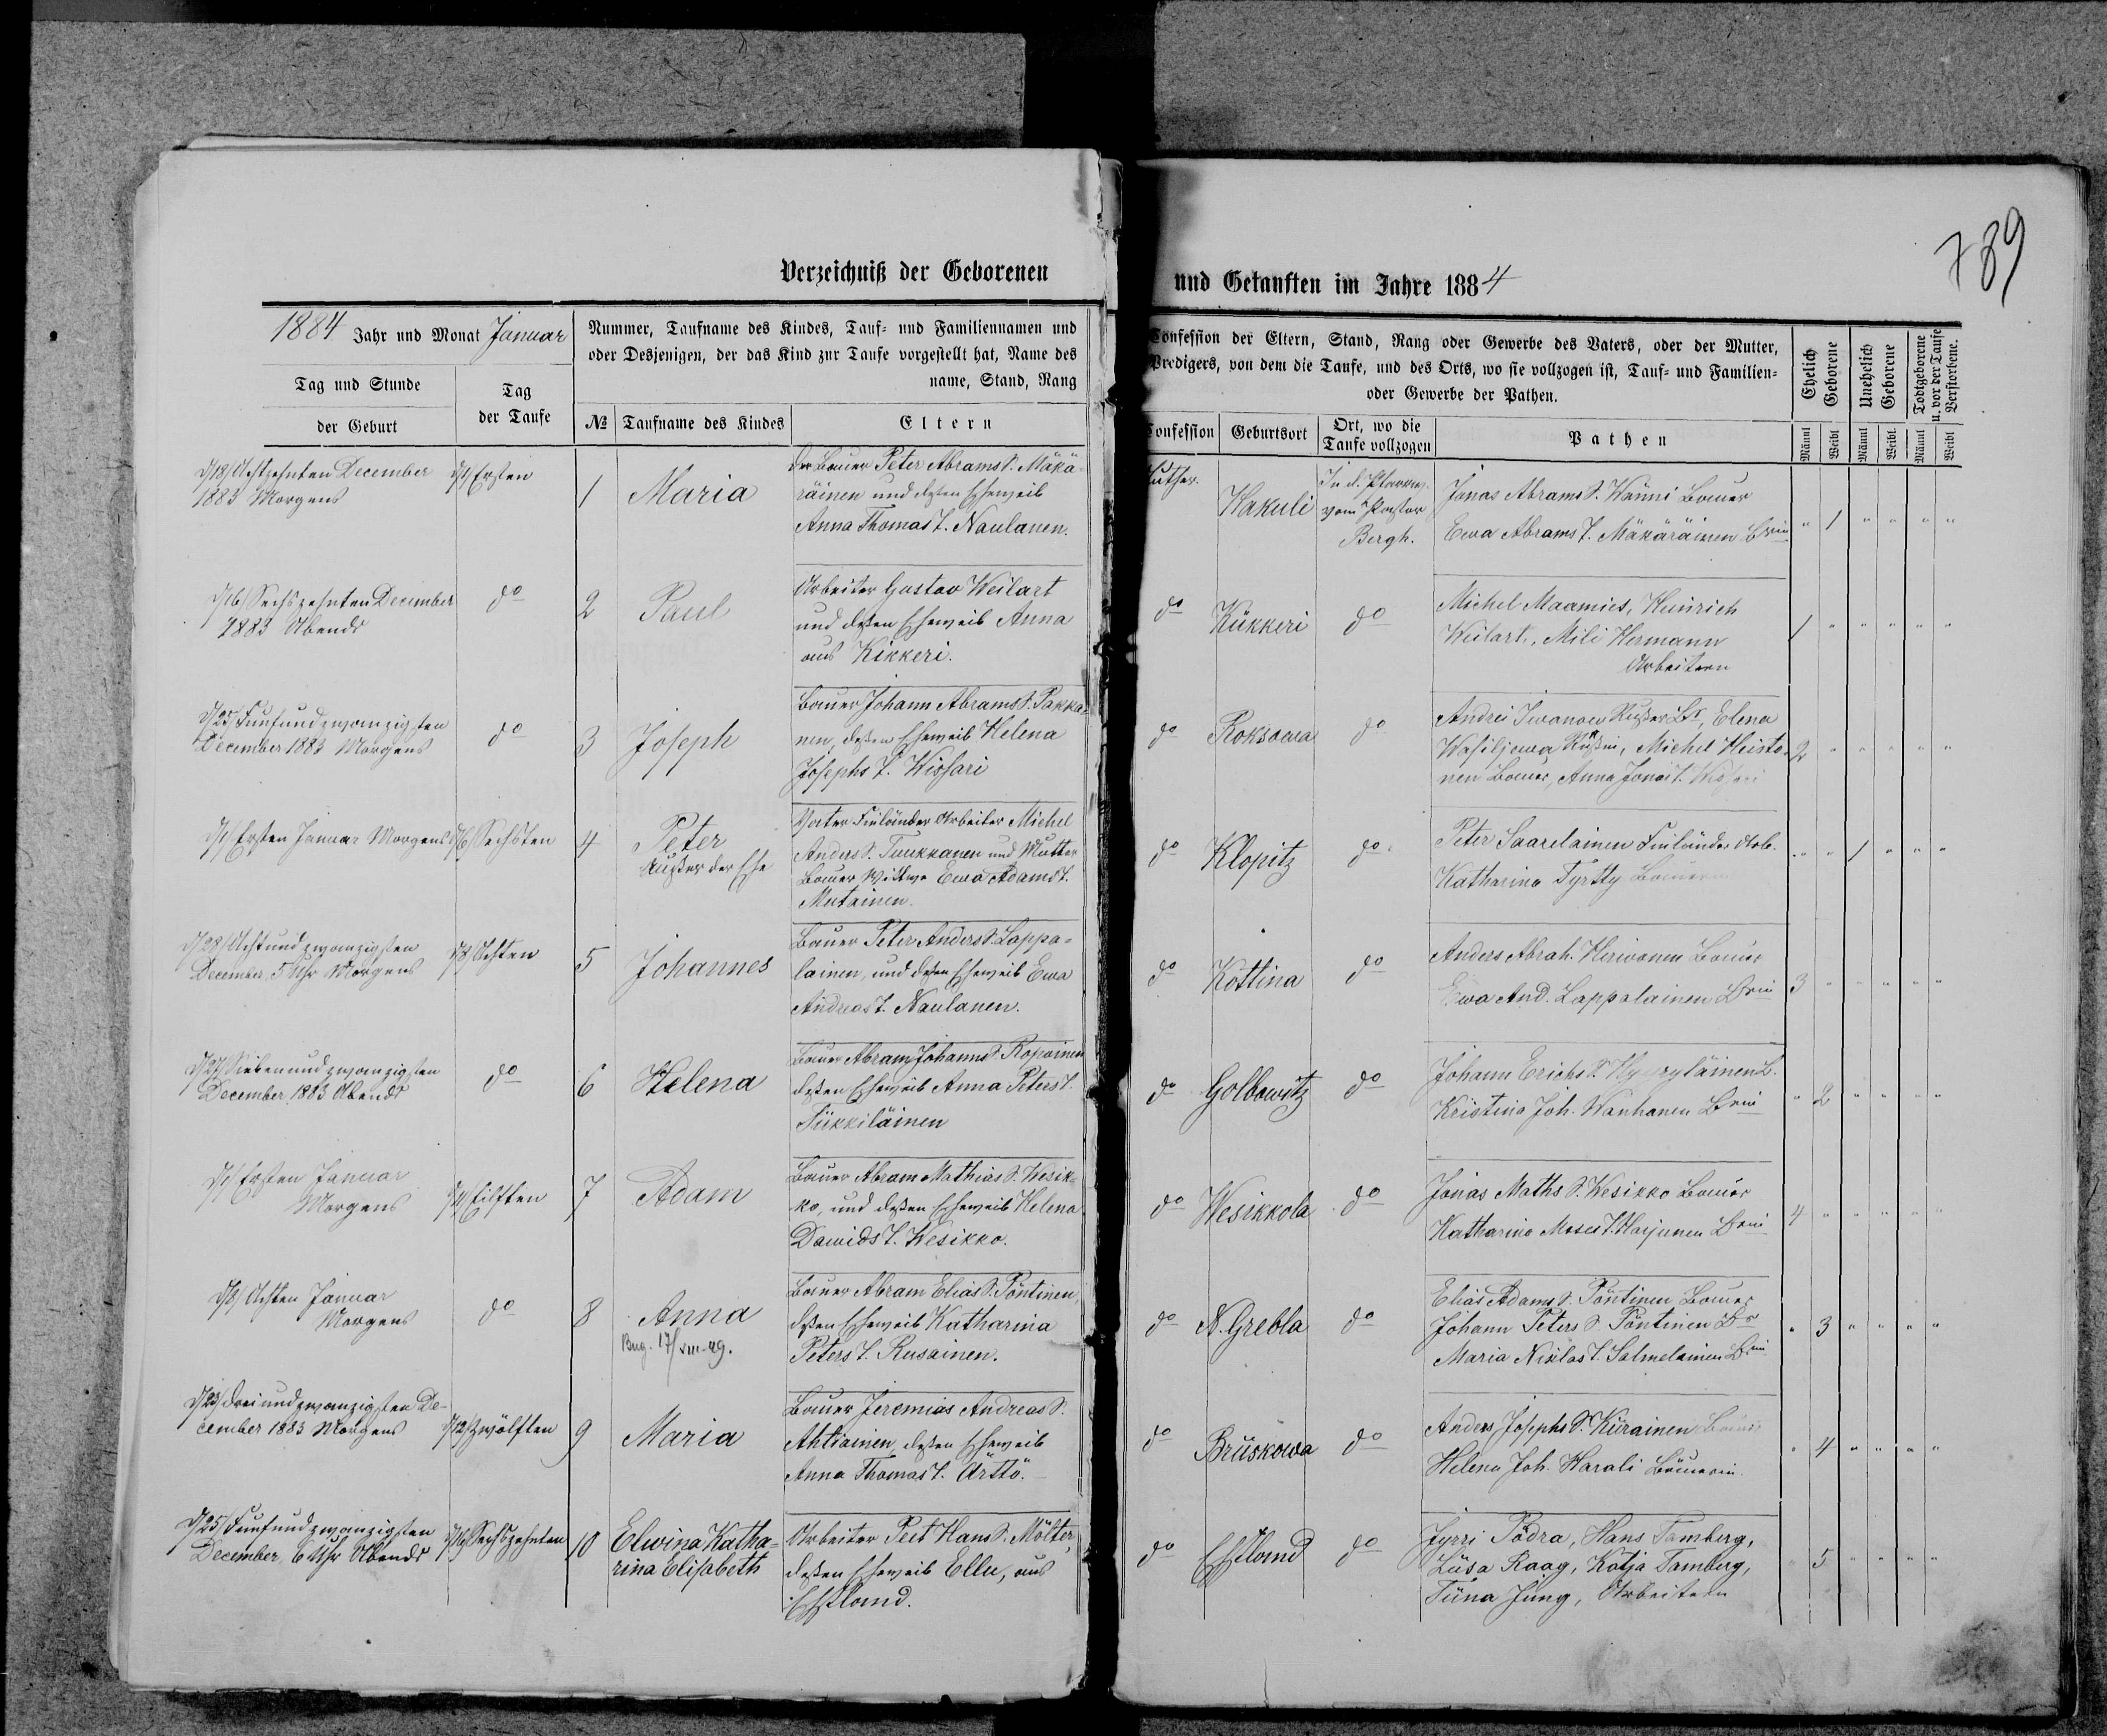 789
Verzeichniß der Geborenen
und Getauften im Jahre 1884
1884 Jahr und Monat Januar
Tag und Stunde
der Geburt
Tag
der Taufe
Nummer, Taufname des Kindes, Tauf- und Familiennamen und
oder Desjenigen, der das Kind zur Taufe vorgestellt hat, Name des
name, Stand, Rang
№ Taufname des Kindes Eltern
Confession der Eltern, Stand, Rang oder Gewerbe des Vaters, oder der Mutter,
Predigers, von dem die Taufe, und des Orts, wo sie vollzogen ist, Tauf- und Familien-
oder Gewerbe der Pathen.
Confession Geburtsort
Ort, wo die
Taufe vollzogen
Pathen
Ehelich
Geborene
Unehelich
Geborene
Todtgeborene
u. vor der Taufe
Verstorbene.
Männl Weibl Männl Weibl. Männl Weibl
d/18/ Achtzehnten December
1883 Morgens
d/1/ Ersten
1 Maria
Der Bauer Peter Abrams S. Mäkä-
räinen und deßen Eheweib
Anna Thomas T. Naulanen.
Luther.
Hakuli
In d.
vom Pastor
Bergh.
Jonas Abrams S. Wänni Bauer
Ewa Abrams T. Mäkäräinen Brin
" 1 " " " "
d/16/ Sechszehnten December
1883 Abends
do
2 Paul
Arbeiter Gustav Weilart
und deßen Eheweib Anna
aus Kikkeri.
do Kükkeri do
Michel Maamies, Heinrich
Weilart, Mili Hermann
Arbeitern
1 " " " " "
d/25/ Fünfundzwanzigsten
December 1883 Morgens
do
3 Joseph
Bauer Johann Abrams S. Pakka-
nen, deßen Eheweib Helena
Josephs T. Wiohari
do Roksowa do
Andrei Iwanow Rußer Br, Elena
Wasiljewa Rußin, Michel Heisto-
nen Bauer, Anna Jonas T.
2 " " " " "
d/1/ Ersten Januar Morgens
d/6/ Sechsten
4 Peter
Außer der Ehe
Vater Finländer Arbeiter Michel
Anders S. Tuukkanen und Mutter
Bauer Wittwe Ewa Adams T.
Mutainen.
do Klopitz do
Peter Saarelainen Finländer Arb.
Katharina Tyrtty Bäuerin
" " 1 " " "
d/28/ Achtundzwanzigsten
December, 5 Uhr Morgens
d/8/ Achten
5 Johannes
Bauer Peter Anders S. Lappa-
lainen, und deßen Eheweib Ewa
Andreas T. Naulanen.
do Kottina do
Anders Abrah. Hirwonen Bauer
Ewa And. Lappalainen Brin
3 " " " " "
d/27/ Siebenundzwanzigsten
December 1883 Abends
do
6 Helena
Bauer Abram Johanns S. Ropoinen
deßen Eheweib Anna Peters T.
Tiikkiläinen
do Golbowitz do
Johann Erichs S. Hyyryläinen B.
Kristina Joh. Wanhanen Brin
" 2 " " " "
d/1/ Ersten Januar
Morgens
d/11/ Eilften
7 Adam
Bauer Abram Mathias S. Wesik-
ko, und deßen Eheweib Helena
Dawids T. Wesikko.
do Wesikkola do
Jonas Maths S. Wesikko Bauer
Katharina Moses T. Harjunen Brin
4 " " " " "
d/8/ Achten Januar
Morgens
do
8 Anna
Bug. 17/VIII-49.
Bauer Abram Elias S. Pöntinen,
deßen Eheweib Katharina
Peters T. Rusainen.
do N. Grebla do
Elias Adams S. Pöntinen Bauer
Johann Peters S. Pöntinen Br
Maria Niklas T. Salmelainen Brin
" 3 " " " "
d/23/ Dreiundzwanzigsten De-
cember 1883 Morgens
d/12/ Zwölften
9 Maria
Bauer Jeremias Andreas S.
Ahtiainen, deßen Eheweib
Anna Thomas T. Ärttö.
do Brüskowa do
Anders Josephs S. Kiirainen Bauer
Helena Joh. Harali Bäuerin.
" 4 " " " "
d/25/ Fünfundzwanzigsten
December, 6 Uhr Abends
d/16/ Sechszehnten
10 Elwina Katha-
rina Elisabeth
Arbeiter Peet Hans S. Mölter,
deßen Eheweib Ellu, aus
Ehstland.
do Ehstland do
Jyrri Pödra, Hans Tamberg,
Liisa Raag, Katja Tamberg,
Tiina Jung, Arbeitern
" 5 " " " "